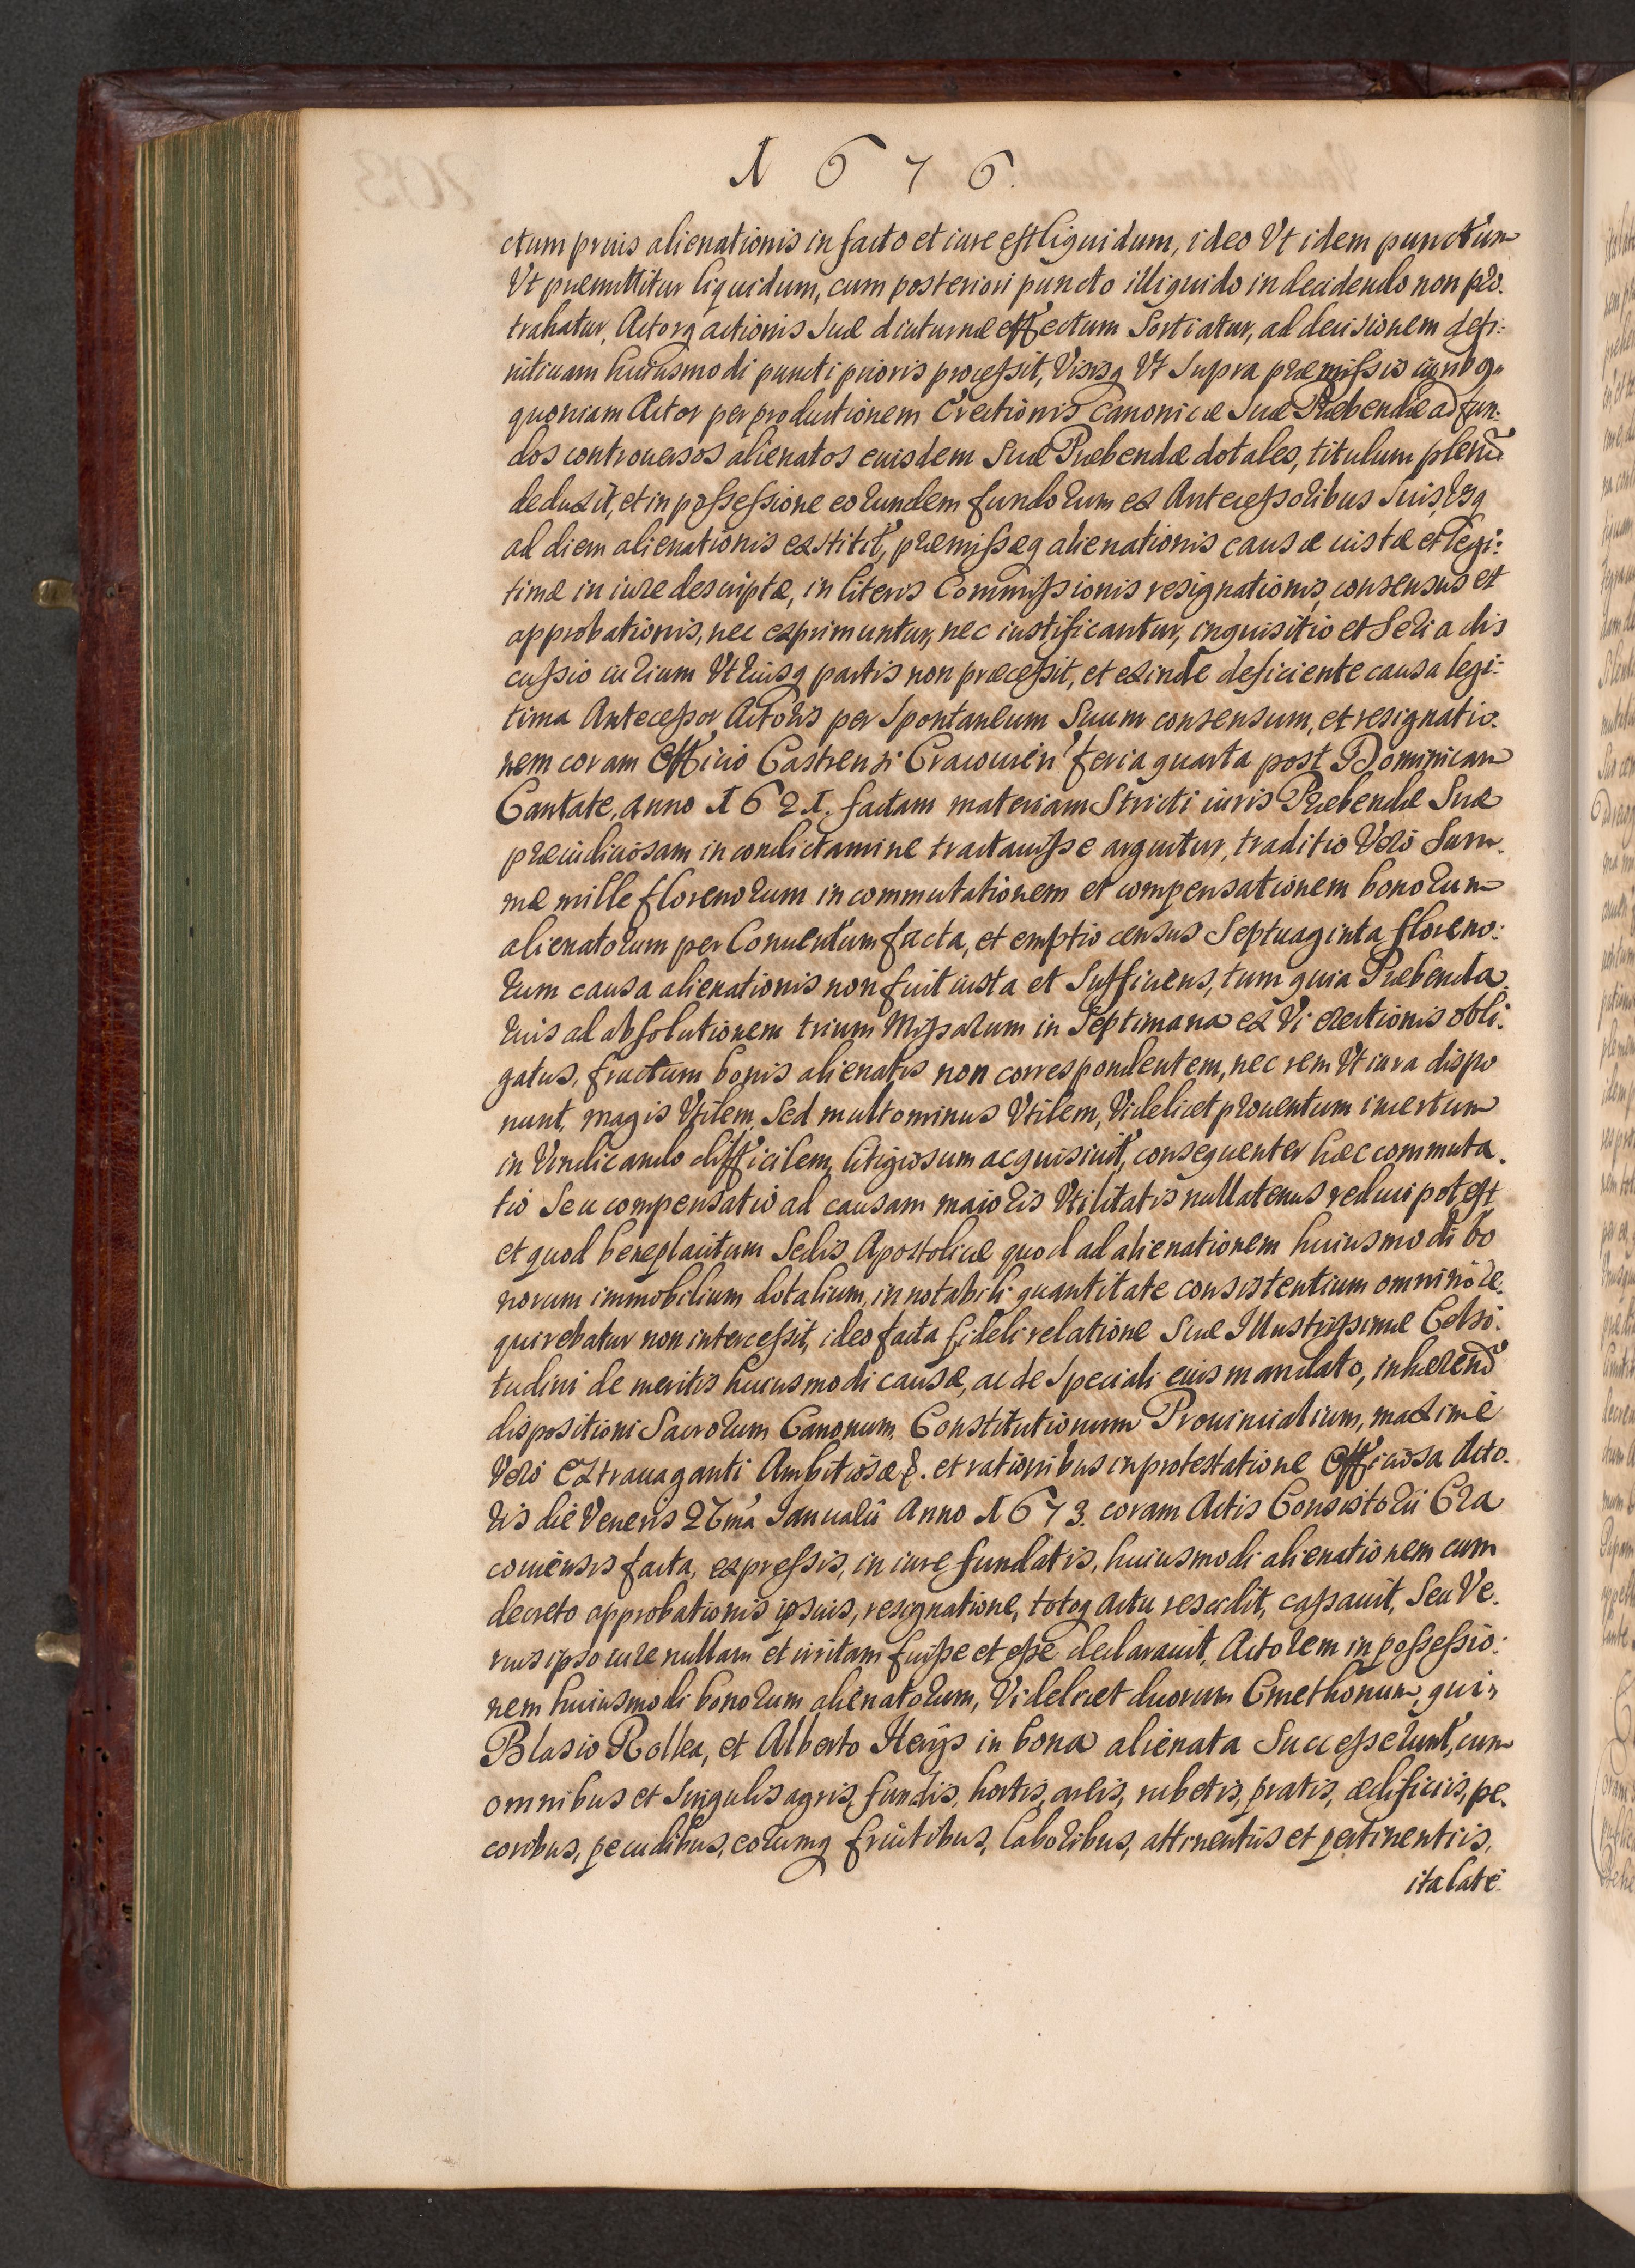 1676.
ctum prius alienationis in facto et iure est liquidum, ideo Vt idem punctum
Vt præmittitur liquidum, cum posteriori puncto illiquido in decidendo non pro.
trahatur, Actorq actionis Suæ diuturnæ effectum Sortiatur, ad decisionem defi:
nitiuam huiusmodi puncti prioris processit, Visisq Vt Supra præmissis
quoniam Actor per productionem Erectionis Canonicæ Suæ Præbendæ ad fun:
dos controuersos alienatos eiusdem Suæ Præbendæ dotales, titulum plenu
deduxit, et in possessione eorundem fundorum ex Antecessoribus Suis, Vsq
ad diem alienationis exstitit, præmissæq alienationis causæ iustæ et legi:
timæ in iure descriptæ, in literis Commissionis resignationis, consensus et
approbationis, nec exprimuntur, nec iustificantur, inquisitio et Seria dis
cussio iurium Vtriusq partis non præcessit, et exinde deficiente causa legi:
tima Antecessor Actoris per Spontaneum Suum consensum, et resignatio.
nem coram Officio Castrensi Cracouien feria quarta post Dominicam
Cantate, anno 1621. factam materiam Stricti iuris Præbendæ Suæ
præiudiciosam in condictamine tractauisse arguitur, traditio Vero Sum.
mæ mille florenorum in commutationem et compensationem bonorum
alienatorum per Conuentum facta, et emptio census Septuaginta floreno:
rum causa alienationis non fuit iusta et Sufficiens, tum quia Præbenda.
rius ad absolutionem trium Missarum in Septimana ex Vi erectionis obli:
gatus, fructum bonis alienatis non correspondentem, nec rem Vt iura dispo
nunt, magis Vtilem, Sed multominus Vtilem, Videlicet prouentum incertum
in Vindicando difficilem, litigiosum acquisiuit, consequenter hæc commuta.
tio Seu compensatio ad causam maioris Vtilitatis nullatenus reduci potest
et quod beneplacitum Sedis Apostolicæ quod ad alienationem huiusmodi bo
norum immobilium dotalium, in notabili quantitate consistentium omnino re.
quirebatur non intercessit, ideo facta fideli relatione Suæ Illustrissimæ Celsi:
tudini de meritis huiusmodi causæ, ac de Speciali eius mandato, inhærend
dispositioni Sacrorum Canonum, Constitutionum Prouincialium, maxime
Vero Extrauaganti Ambitiosæ &. et rationibus in protestatione Officiosa Acto.
ris die Veneris 27ma Ianuarii Anno 1673. coram Actis Consistorii Cra
couiensis facta, expressis, in iure fundatis, huiusmodi alienationem cum
decreto approbationis ipsius, resignatione, totoq actu rescidit, cassauit, Seu Ve.
rius ipso iure nullam et irritam fuisse et esse declarauit, Actorem in possessio:
nem huiusmodi bonorum alienatorum, Videlicet duorum Cmethonum, qui
Blasio Rollea, et Alberto Heyis in bona alienata Successerunt, cum
omnibus et Singulis agris, fundis, hortis, areis, rubetis, pratis, ædificiis, pe.
coribus, pecudibus, eorumq fructibus, laboribus, attinentiis et pertinentiis,
ita late